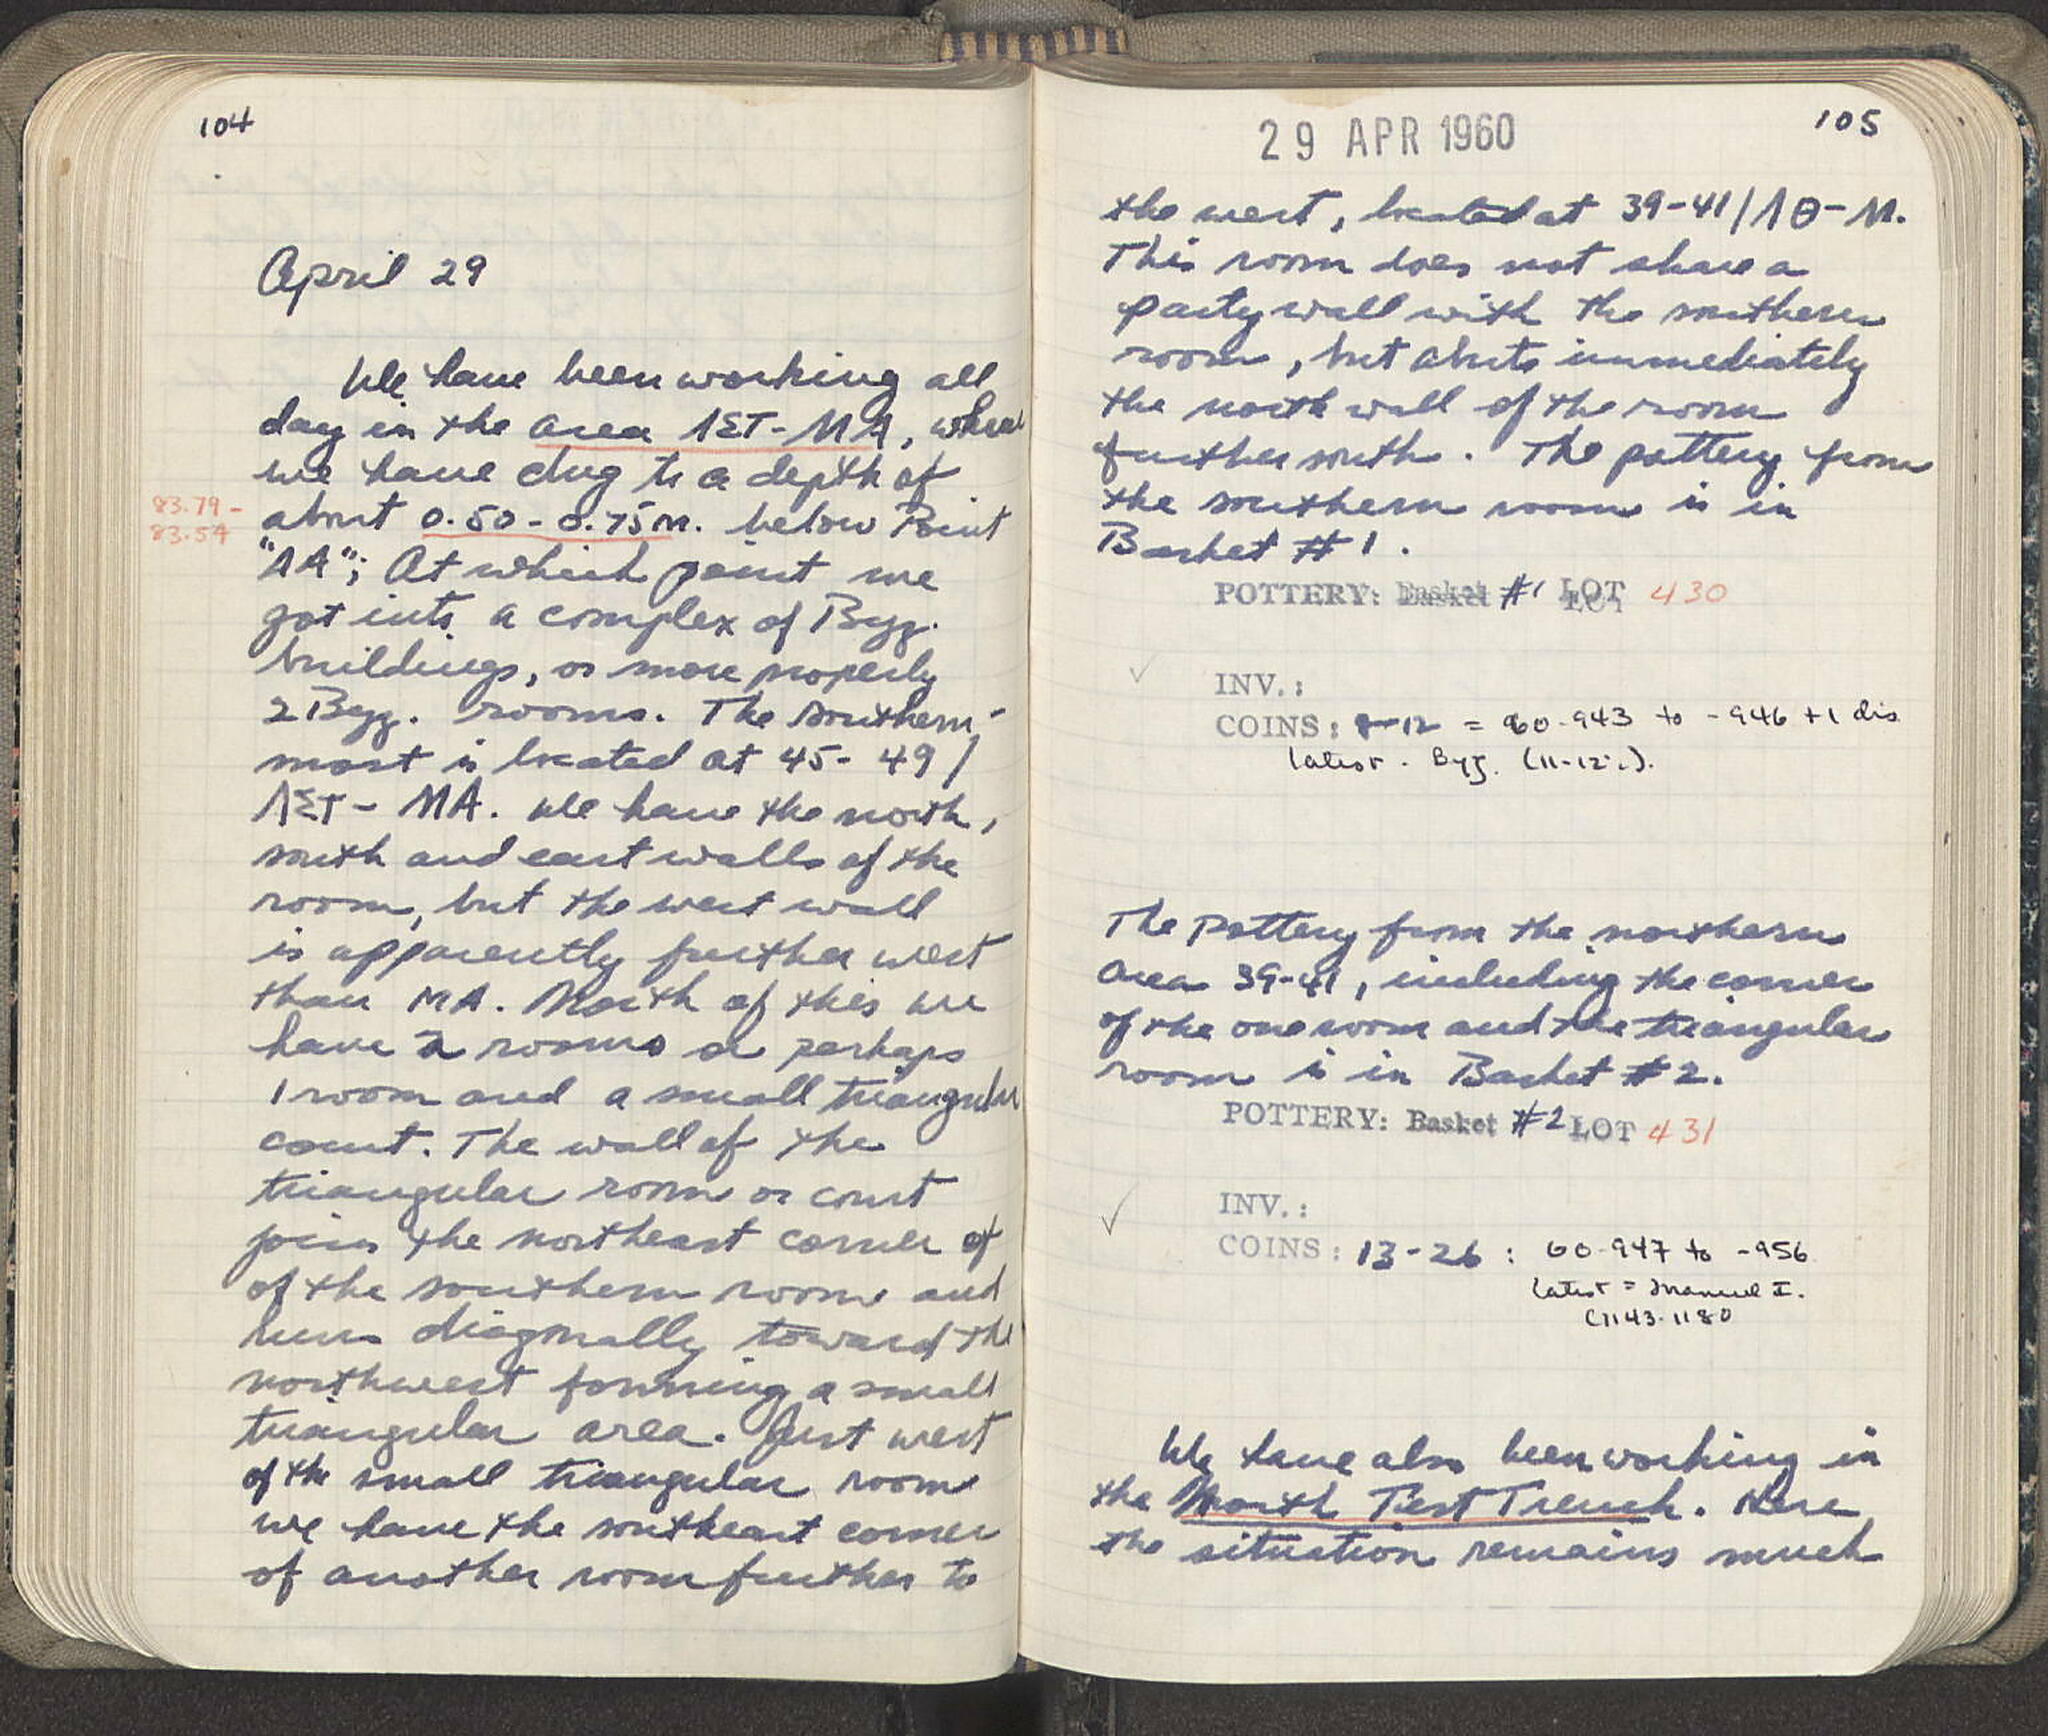 104
April 29
We have been working all
day in the area ΛΣΤ-ΜΑ, where
we have dug to a depth of
83.79 -
83.54
about 0.50-0.75m. below Point
"AA"; At which point we
got into a complex of Byz.
buildings, or more properly
2 Byz. rooms. The southern-
most is located at 45-49/
ΛΣΤ-ΜΑ. We have the north,
south and east walls of the
room, but the west wall
is apparently further west
than ΜΑ. North of this we
have 2 rooms or perhaps
1 room and a small triangular
court. The wall of the
triangular room or court
joins the northeast corner of
of the southern room and
runs diagonally toward the
northwest forming a small
triangular area. Just west
of the small triangular room
we have the southeast corner
of another room further to
105
29 APR 1960
the west, located at 39-41/ΛΘ-Μ.
This room does not share a
party wall with the southern
room, but abuts immediately
the north wall of the room
further south. The pottery from
the southern room is in
Basket #1.
POTTERY: Basket #1 LOT 430
INV.:
COINS: 8-12 = 60-943 to -946 +1 dis
latest - Byz. (11-12c.).
The pottery from the northern
area 39-41, including the corner
of the one room and the triangular
room is in Basket #2.
POTTERY: Basket #2 LOT 431
INV.:
COINS: 13-26 : 60-947 to -956
latest = Manuel I.
(1143-1180
We have also been working in
the North Test Trench. Here
the situation remains much